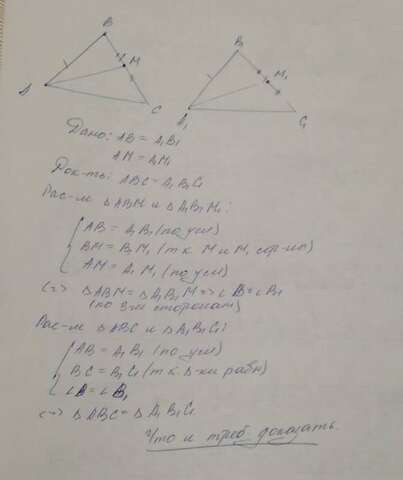 B
B₁
M
M₁
A
C
A₁
C₁
Дано: AB = A₁B₁
AM = A₁M₁
Док-ть: ABC = A₁B₁C₁
Рас-м ΔABM и ΔA₁B₁M₁:
AB = A₁B₁ (по усл)
BM = B₁M₁ (т к M и M₁ сер-ны)
AM = A₁M₁ (по усл)
(=> ΔABM = ΔA₁B₁M => ∠B = ∠B₁
(по 3-м сторонам)
Рас-м ΔABC и ΔA₁B₁C₁:
AB = A₁B₁ (по усл)
BC = B₁C₁ (т к Δ-ки равн)
∠B = ∠B₁
(=> ΔABC = ΔA₁B₁C₁
Что и треб. доказать.